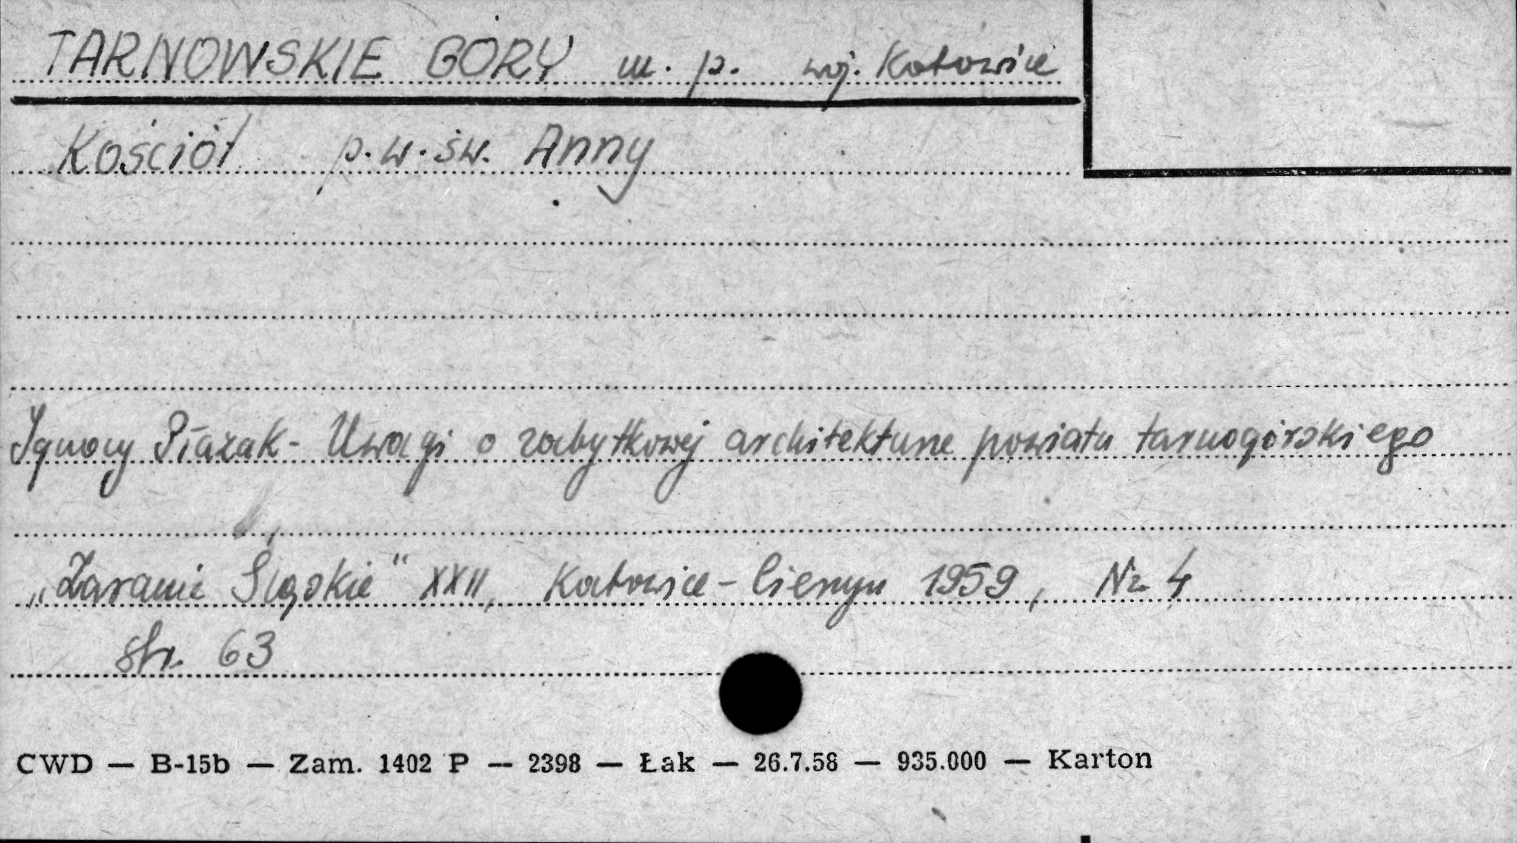 TARNOWSKIE GÓRY m. p. woj. Katowice
Kościół p.w. św. Anny
Ignacy Płazak - Uwagi o zabytkowej architekturze powiatu tarnogórskiego
„Zaranie Śląskie" XXII, Katowice - Cieszyn 1959, Nr 4
str. 63
CWD — B-15b — Zam. 1402 P — 2398 — Łak — 26.7.58 — 935.000 — Karton